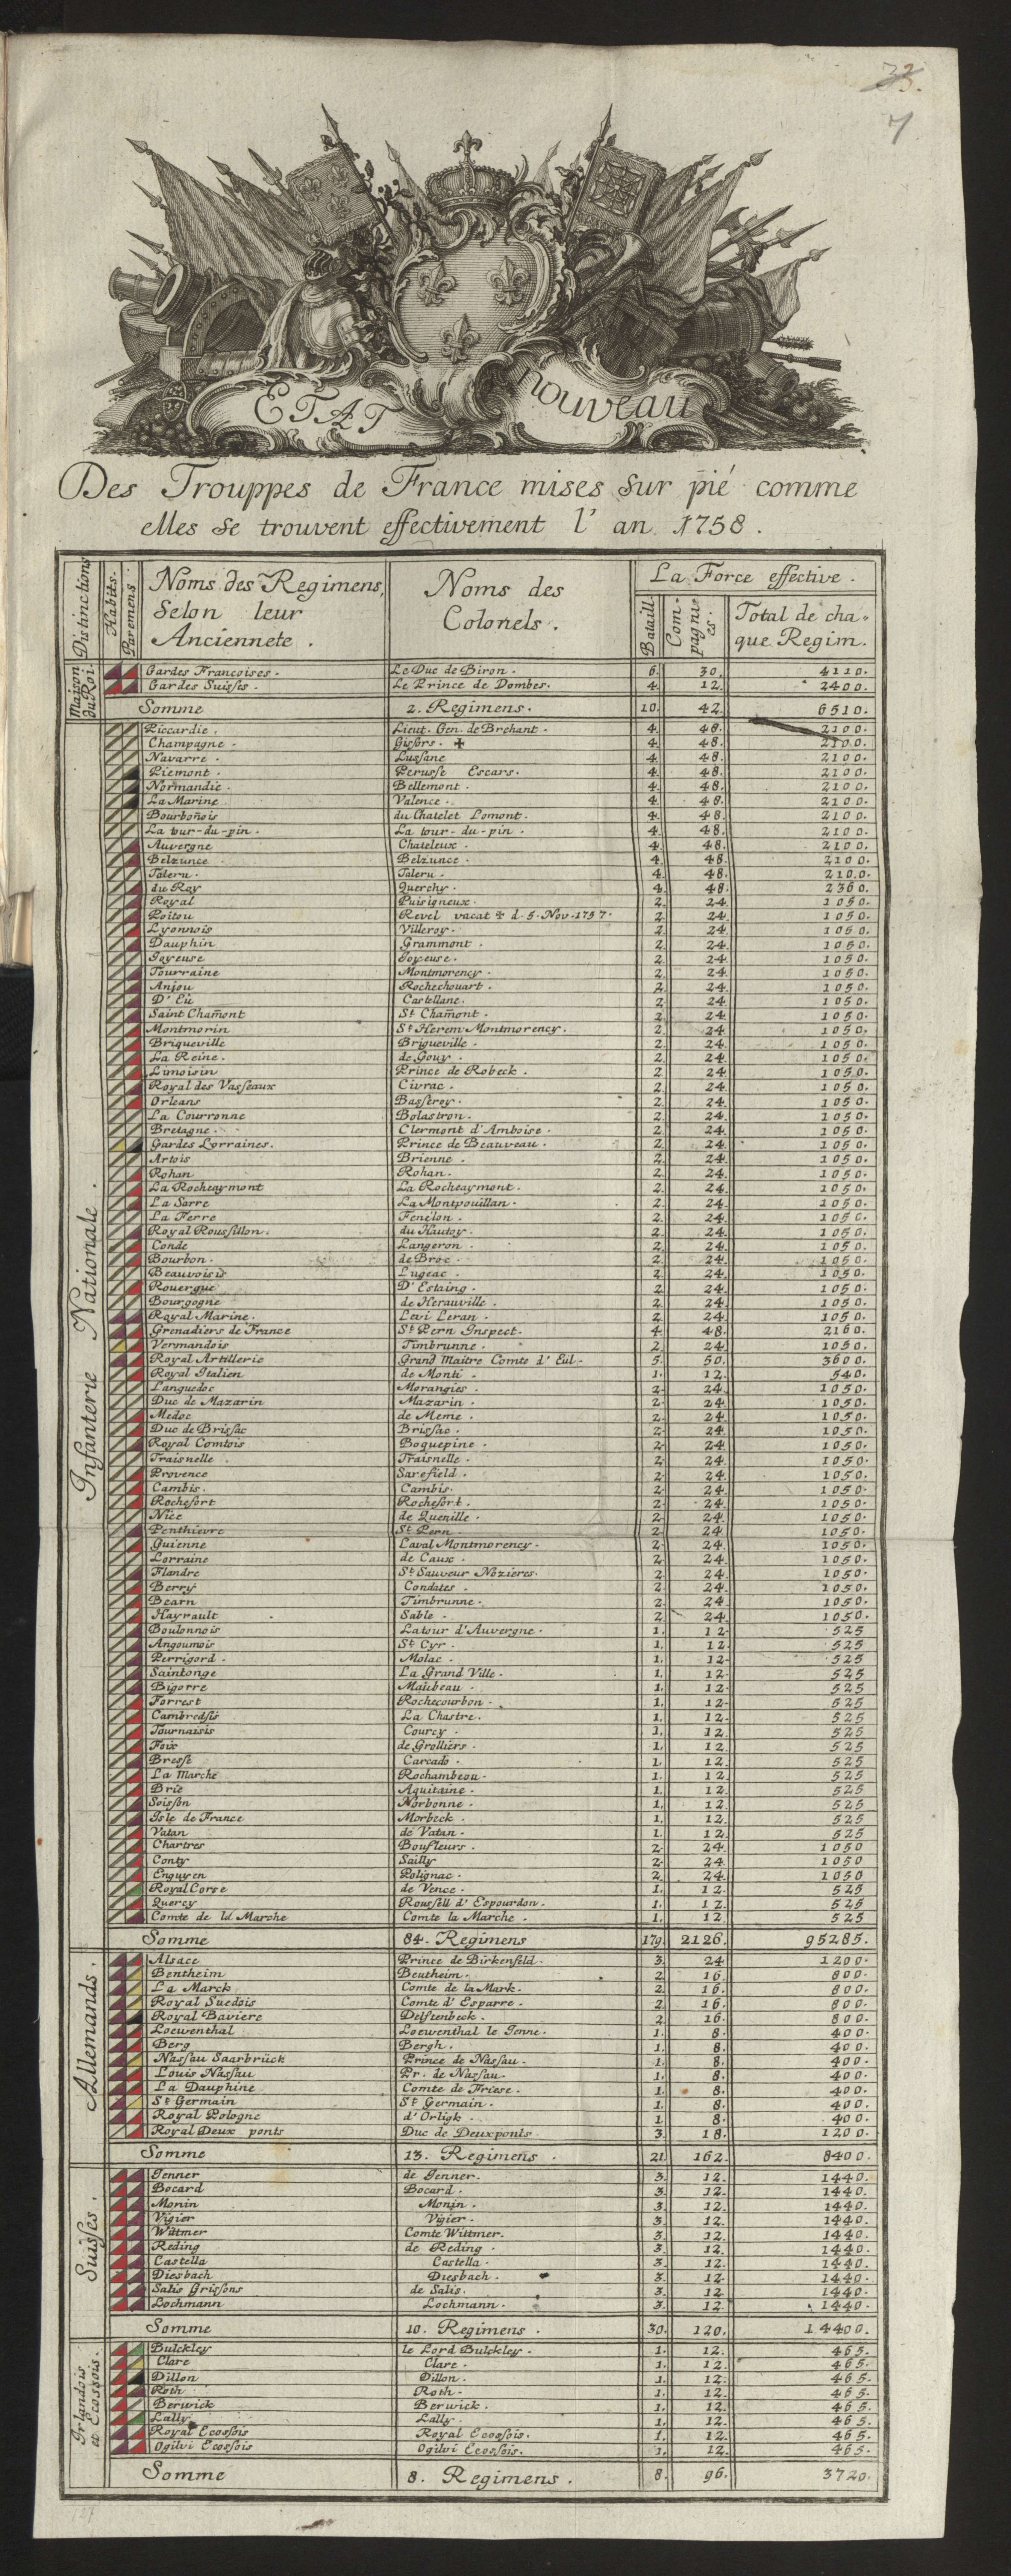 33.
7
ETAT nouveau
Des Trouppes de France mises sur pié comme
elles se trouvent effectivement l' an 1758.
Distinctions Habits. Paremens. Noms des Regimens, Selon leur Anciennete. Noms des Colonels. La Force effective.
Bataill. Compagnies. Total de chaque Regim.
Maison du Roi.
Gardes Francoises. Le Duc de Biron. 6. 30. 4110.
Gardes Suisses. Le Prince de Dombes. 4. 12. 2400.
Somme 2. Regimens. 10. 42. 6510.
Infanterie Nationale.
Piccardie. Lieut. Gen. de Brehant. 4. 48. 2100.
Champagne. Gisors. ✠ 4. 48. 2100.
Navarre. Lussane 4. 48. 2100.
Piemont. Perusse Escars. 4. 48. 2100.
Normandie. Bellemont. 4. 48. 2100.
La Marine Valence. 4. 48. 2100.
Bourbonois du Chatelet Lomont. 4. 48. 2100.
La tour-du-pin. La tour-du-pin. 4. 48. 2100.
Auvergne Chateleux. 4. 48. 2100.
Belzunce Belzunce. 4. 48. 2100.
Taleru. Taleru. 4. 48. 2100.
du Roy Querchy. 4. 48. 2360.
Royal Puisigneux. 2. 24 1050.
Poitou Revel vacat ✠ d. 5. Nov. 1757. 2. 24. 1050.
Lyonnois Villeroy. 2. 24. 1050.
Dauphin Grammont. 2. 24. 1050.
Joyeuse Joyeuse. 2. 24. 1050.
Tourraine Montmorency. 2. 24. 1050.
Anjou Rochechouart. 2. 24. 1050.
D' Eu Castellane. 2. 24. 1050.
Saint Chamont St Chamont. 2. 24. 1050.
Montmorin St Herem Montmorency. 2. 24. 1050.
Briqueville Briqueville. 2. 24. 1050.
La Reine. de Gouy. 2. 24. 1050.
Limoisin Prince de Robeck. 2. 24. 1050.
Royal des Vasseaux Civrac. 2. 24. 1050.
Orleans Basseroy. 2. 24. 1050.
La Couronne Bolastron. 2. 24. 1050.
Bretagne. Clermont d'Amboise. 2. 24. 1050.
Gardes Lorraines. Prince de Beauveau. 2. 24. 1050.
Artois Brienne. 2. 24. 1050.
Rohan Rohan. 2. 24. 1050.
La Rocheaymont La Rocheaymont. 2. 24. 1050.
La Sarre La Montpouillan. 2. 24. 1050.
La Ferre Fenelon. 2. 24. 1050.
Royal Roussillon. du Hautoy. 2. 24. 1050.
Conde Langeron. 2. 24. 1050.
Bourbon. de Broc. 2. 24. 1050.
Beauvoisis Lugeac. 2. 24. 1050.
Rouergue D' Estaing. 2. 24. 1050.
Bourgogne de Herauville. 2. 24. 1050.
Royal Marine. Levi Leran. 2. 24. 1050.
Grenadiers de France St Pern Inspect. 4. 48. 2160.
Vermandois Timbrunne. 2. 24. 1050.
Royal Artillerie Grand Maitre Comte d' Eu. 5. 50. 3600.
Royal Italien de Monti. 1. 12. 540.
Languedoc Morangies. 2. 24. 1050.
Duc de Mazarin Mazarin. 2. 24. 1050.
Medoc de Meme. 2. 24. 1050.
Duc de Brissac Brissac. 2. 24. 1050.
Royal Comtois Boquepine. 2. 24. 1050.
Traisnelle. Traisnelle. 2. 24. 1050.
Provence Sarefield. 2. 24. 1050.
Cambis. Cambis. 2. 24. 1050.
Rochefort Rochefort. 2. 24. 1050.
Nice de Quenille. 2. 24. 1050.
Penthievre St Pern. 2. 24. 1050.
Guienne Laval Montmorency. 2. 24. 1050.
Lorraine de Caux. 2. 24. 1050.
Flandre St Sauveur Nozieres. 2. 24. 1050.
Berry Condates. 2. 24. 1050.
Bearn Timbrunne. 2. 24. 1050.
Hayrault Sable. 2. 24. 1050.
Boulonnois Latour d'Auvergne. 1. 12. 525
Angoumois St Cyr. 1. 12. 525
Perrigord. Molac. 1. 12. 525
Saintonge La Grand Ville. 1. 12. 525
Bigorre Maubeau. 1. 12. 525
Forrest Rochecourbon. 1. 12. 525
Cambresis La Chastre. 1. 12. 525
Tournaisis Courcy. 1. 12. 525
Foix de Grolliers. 1. 12. 525
Bresse Carcado. 1. 12. 525
La Marche Rochambeou. 1. 12. 525
Brie Aquitaine. 1. 12. 525
Soisson Norbonne. 1. 12. 525
Isle de France Morbeck. 1. 12. 525
Vatan de Vatan. 1. 12. 525
Chartres Boufleurs. 2. 24. 1050
Conty Sailly 2. 24. 1050
Enguyen Polignac. 2. 24. 1050
Royal Corse de Vence. 1. 12. 525
Quercy Roussell d' Espourdon. 1. 12. 525
Comte de la Marche Comte la Marche. 1. 12. 525
Somme 84. Regimens 179. 2126. 95285.
Allemands.
Alsace Prince de Birkenfeld. 3. 24 1200.
Bentheim Beutheim. 2. 16. 800.
La Marck Comte de la Mark. 2. 16. 800.
Royal Suedois Comte d' Esparre. 2. 16. 800.
Royal Baviere Delftenbeck. 2. 16. 800.
Loewenthal Loewenthal le Jenne. 1. 8. 400.
Berg Bergh. 1. 8. 400.
Nassau Saarbrück Prince de Nassau. 1. 8. 400.
Louis Nassau Pr. de Nassau. 1. 8. 400.
La Dauphine Comte de Friese. 1. 8. 400.
St Germain St Germain. 1. 8. 400.
Royal Pologne d'Orligk. 1. 8. 400.
Royal Deux ponts Duc de Deuxponts. 3. 18. 1200.
Somme 13. Regimens. 21. 162. 8400.
Suisses.
Jenner de Jenner. 3. 12. 1440.
Bocard Bocard. 3. 12. 1440.
Monin Monin. 3. 12. 1440.
Vigier Vigier. 3. 12. 1440.
Wittmer Comte Wittmer. 3. 12. 1440.
Reding de Reding. 3. 12. 1440.
Castella Castella. 3. 12. 1440.
Diesbach Diesbach. 3. 12. 1440.
Salis Grissons de Salis. 3. 12. 1440.
Lochmann Lochmann. 3. 12. 1440.
Somme 10. Regimens. 30. 120. 14400.
Irlandois et Ecossois.
Bulckley le Lord Bulckley. 1. 12. 465.
Clare Clare. 1. 12. 465.
Dillon Dillon. 1. 12. 465.
Roth Roth. 1. 12. 465.
Berwick Berwick. 1. 12. 465.
Lally Lally. 1. 12. 465.
Royal Ecossois Royal Ecossois. 1. 12. 465.
Ogilvi Ecossois Ogilvi Ecossois. 1. 12. 465.
Somme 8. Regimens. 8. 96. 3720.